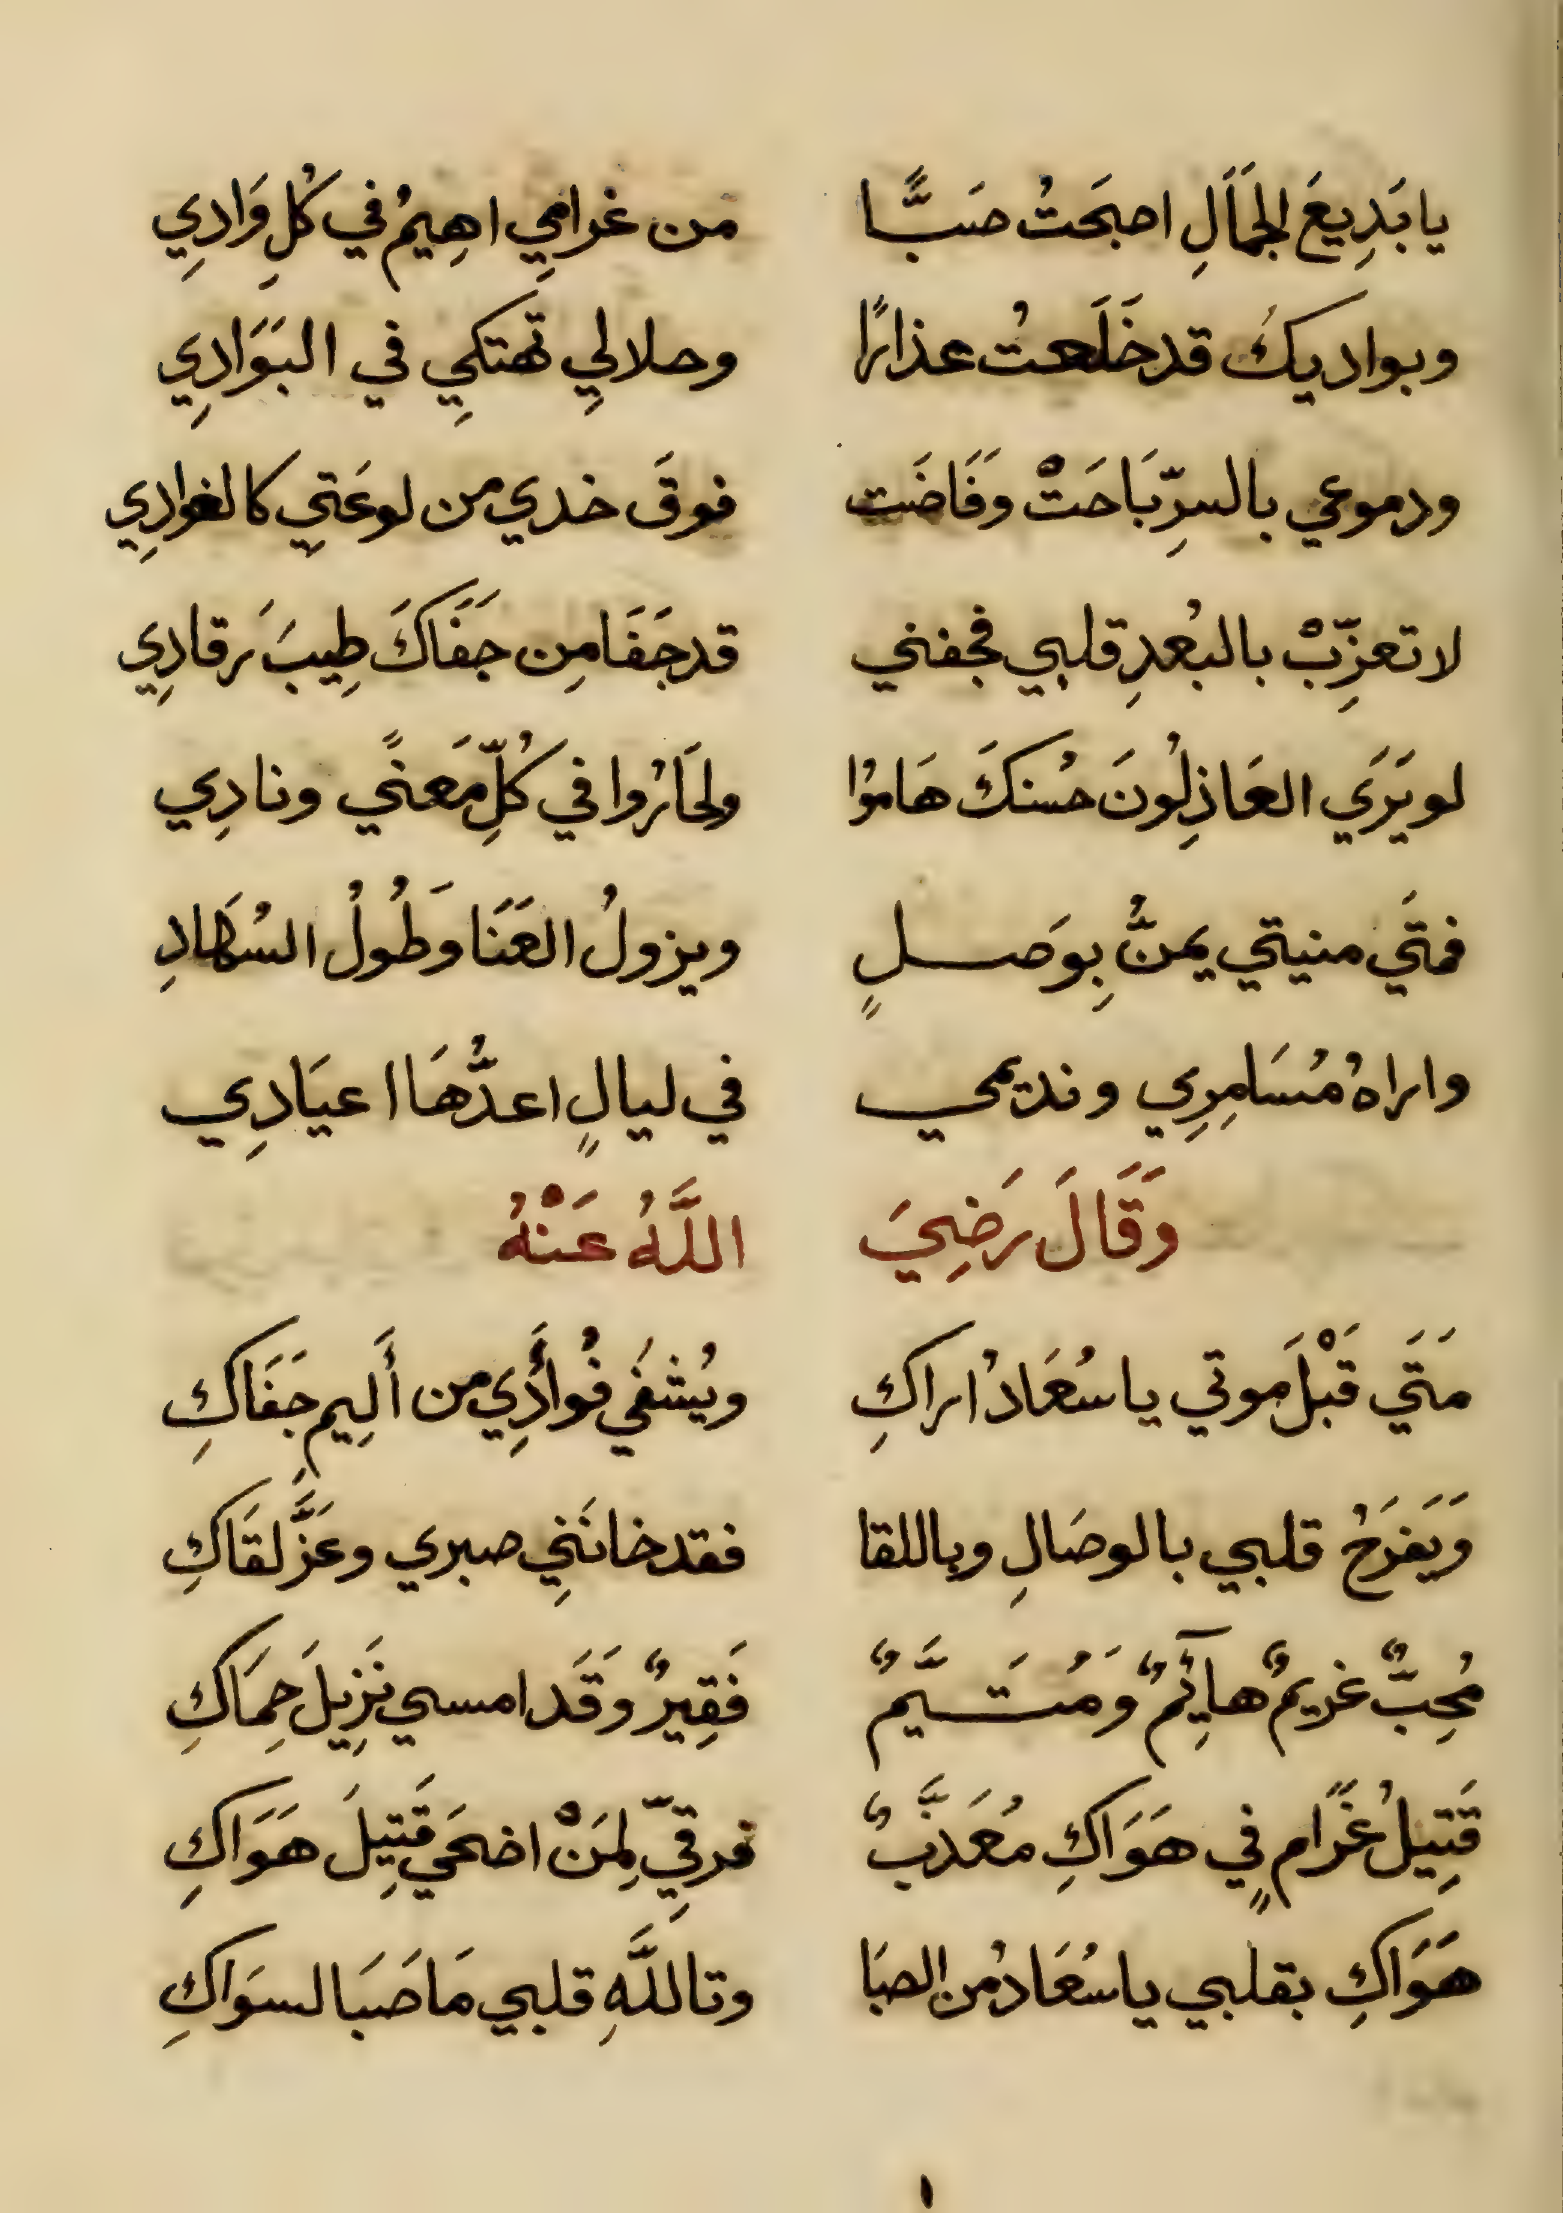 يا بَدِيعَ الجَمَالِ اصبَحتُ صَبًّا من غرامِي اهِيمُ في كُلِ وَادِي
وبواديكَ قد خَلَعتُ عذارًا وحلالِي تهتكِي في البَوَادِي
ودموعي بالسرِّ بَاحَتْ وَفَاضَت فوقَ خدي من لوعَتِي كالغوادِي
لا تعزِّبْ بالبُعدِ قلبي فجفني قد جَفَا مِن جَفَاكَ طِيبَ رقادِي
لو يَرَي العَاذِلُونَ حُسنكَ هَامُوا ولحَارُوا في كُلِّ مَعنًي ونادِي
فمتَي منيتي يمنُّ بِوَصلٍ ويزولُ العَنَا وَطُولُ السُهَادِ
واراهُ مُسَامِرِي ونديمي في ليالٍ اعدُّهَا اعيَادِي
وَقَالَ رَضِيَ اللَّهُ عَنْهُ
مَتَي قَبْلَ موتي يا سُعَادُ اراكِ ويُشفَي فُوأَدِي من أَلِيمِ جَفَاكِ
وَيَفرَحُ قلبي بالوصَالِ وباللقا فقد خانَنِي صبري وعَزَّ لقَاكِ
مُحِبٌّ غريمٌ هآئِمٌ وَمُتَيَّمٌ فَقِيرٌ وَقَد امسي نَزِيلَ حِمَاكِ
قَتِيلُ غَرَامٍ فِي هَوَاكِ مُعَذَّبٌ فرقِّي لِمَنْ اضحَي قَتِيلَ هَوَاكِ
هَوَاكِ بقلبي يا سُعَادُ من الصبَا وتاللَّهِ قلبي مَا صَبَا لسوَاكِ
١